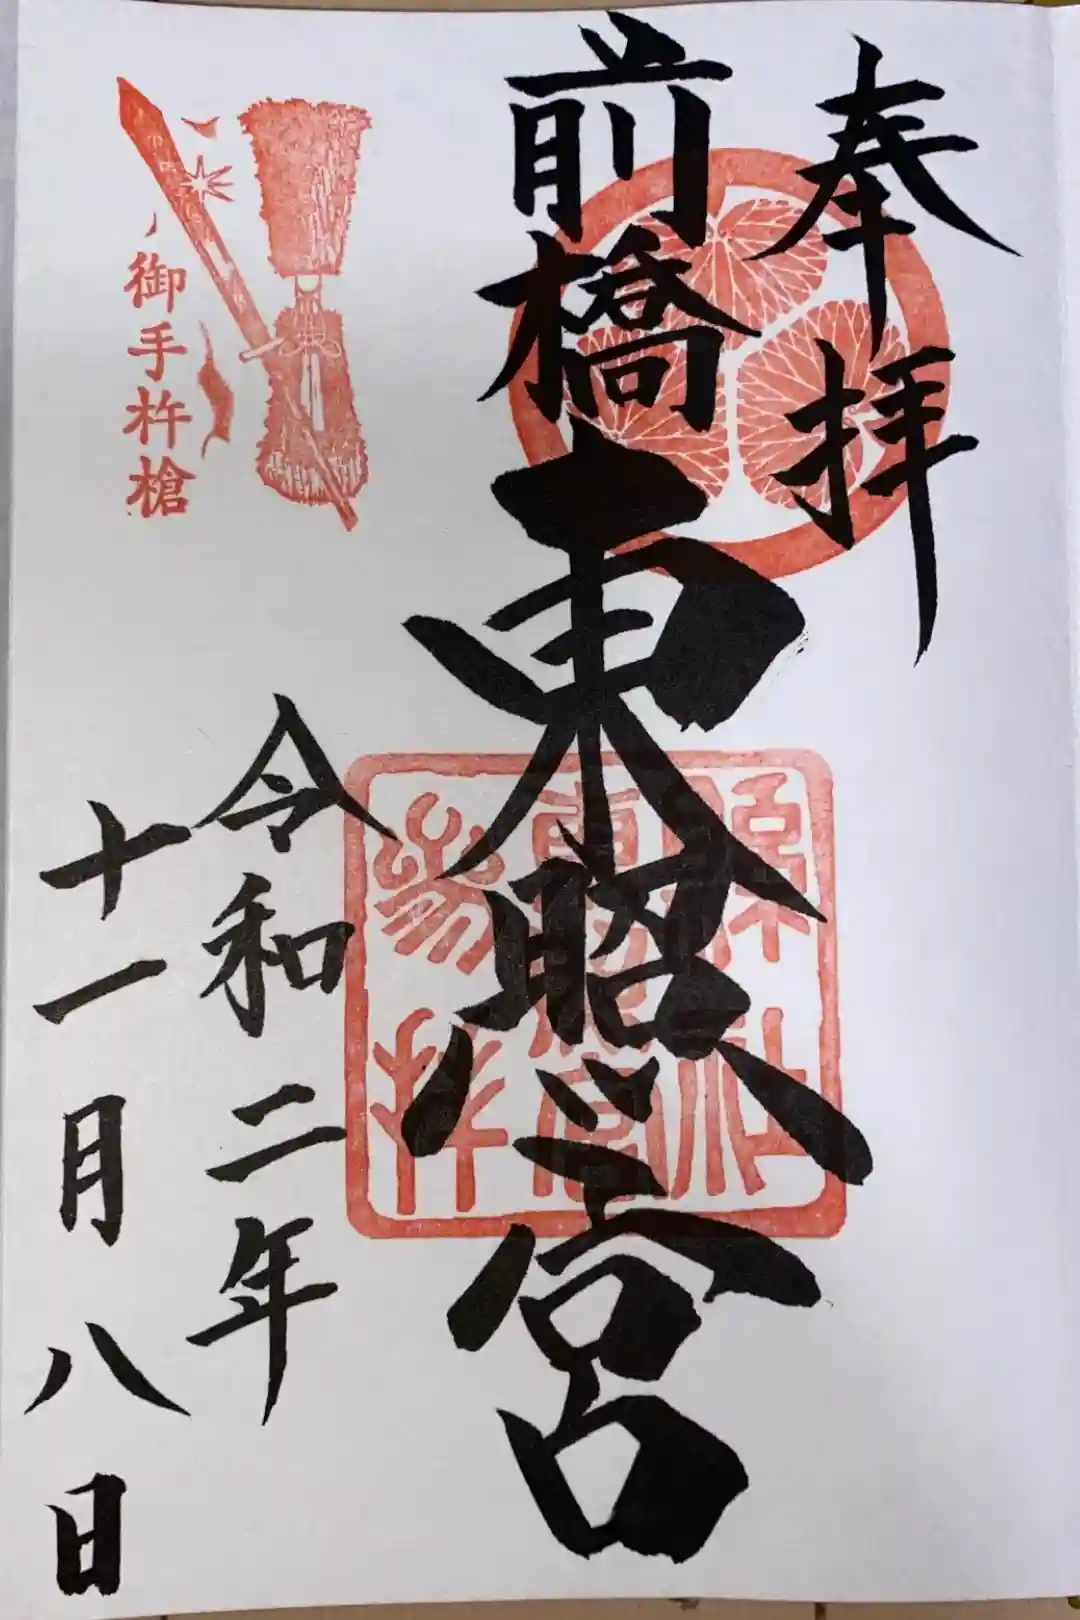 奉拝
前橋東照宮
縣社
東照宮
参拝
令和二年
十一月八日
御手杵槍